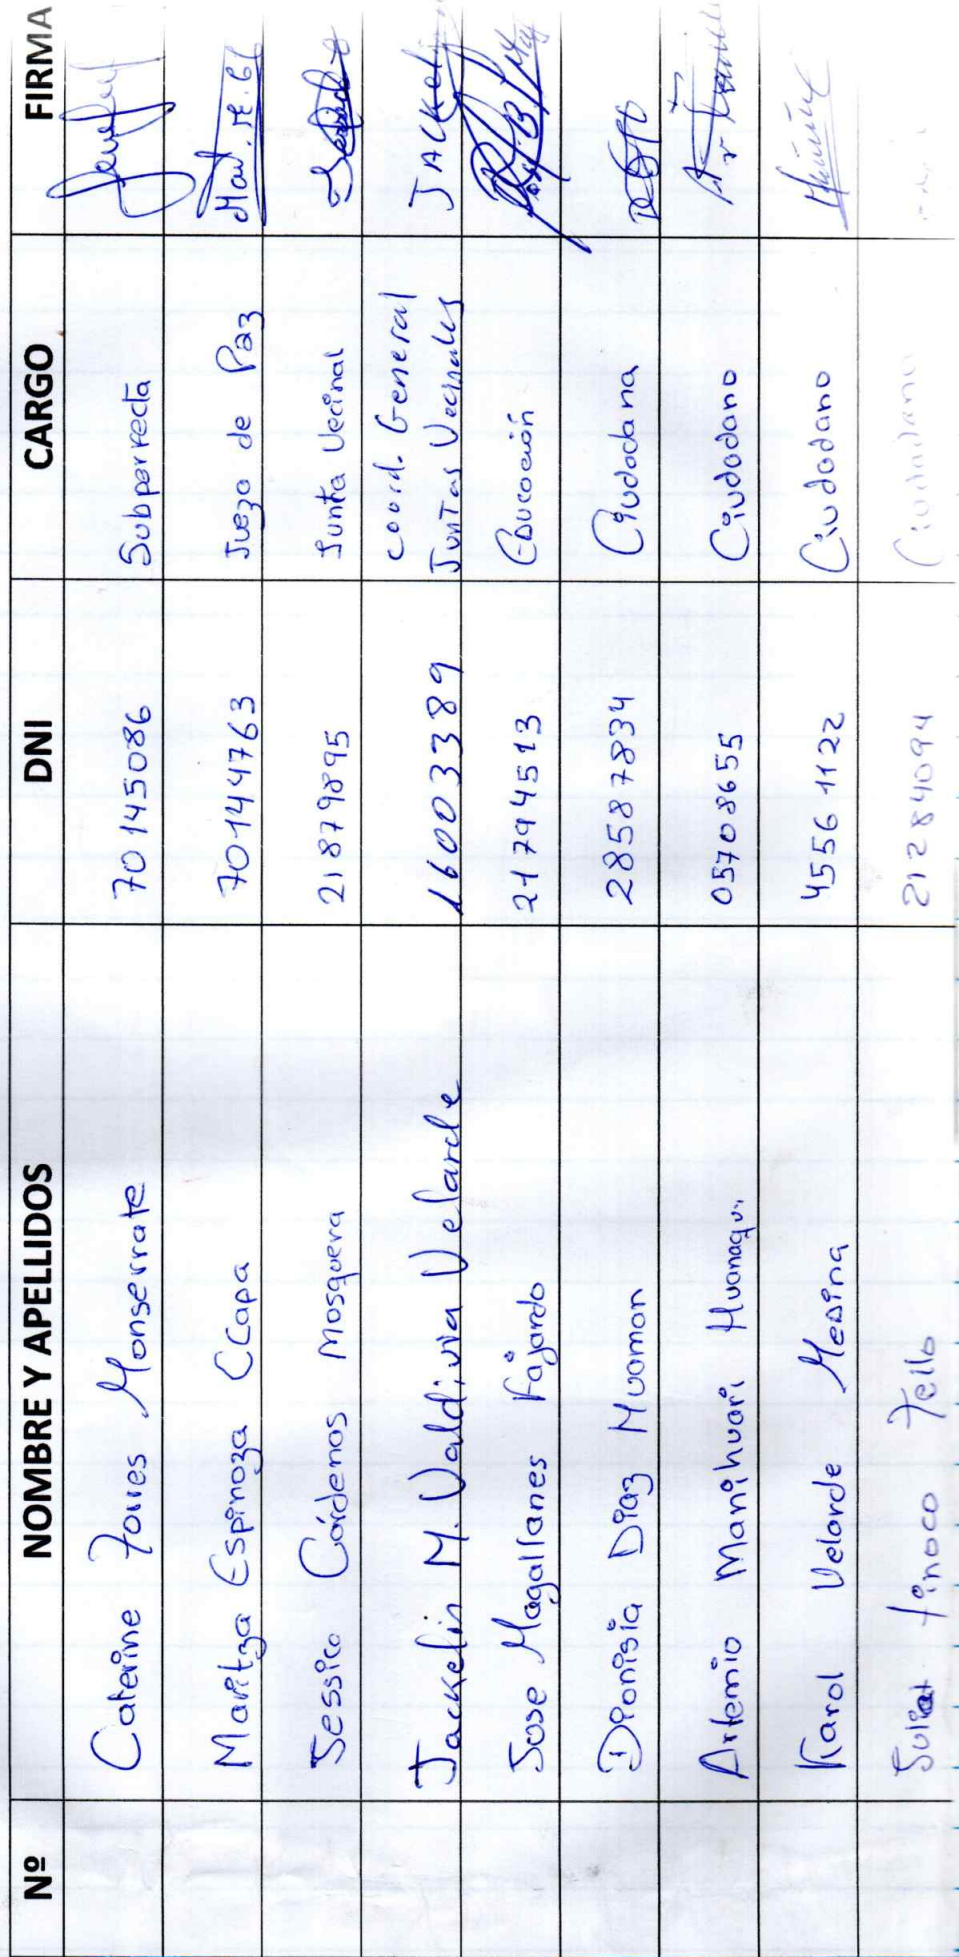 Nº NOMBRE Y APELLIDOS DNI CARGO FIRMA
Caterine Torres Monserrate 70145086 Subprrecta
Maritza Espinoza Capa 70144763 Juezo de Paz
Jessica Cárdenas Mosquera 21879895 Junta Vecinal
Jackelin M. Valdivia Velarde 16003389 Coord. General
Juntas Vecinales
Jose Magallanes Fajardo 21794513 Educación
Dionisia Diaz Huaman 28587834 Ciudadana
Artemio Manihuari Huanaqui 05708655 Ciudadano
Karol Velarde Medina 45561122 Ciudadano
Tinoco Tello 21284094 Ciudadano